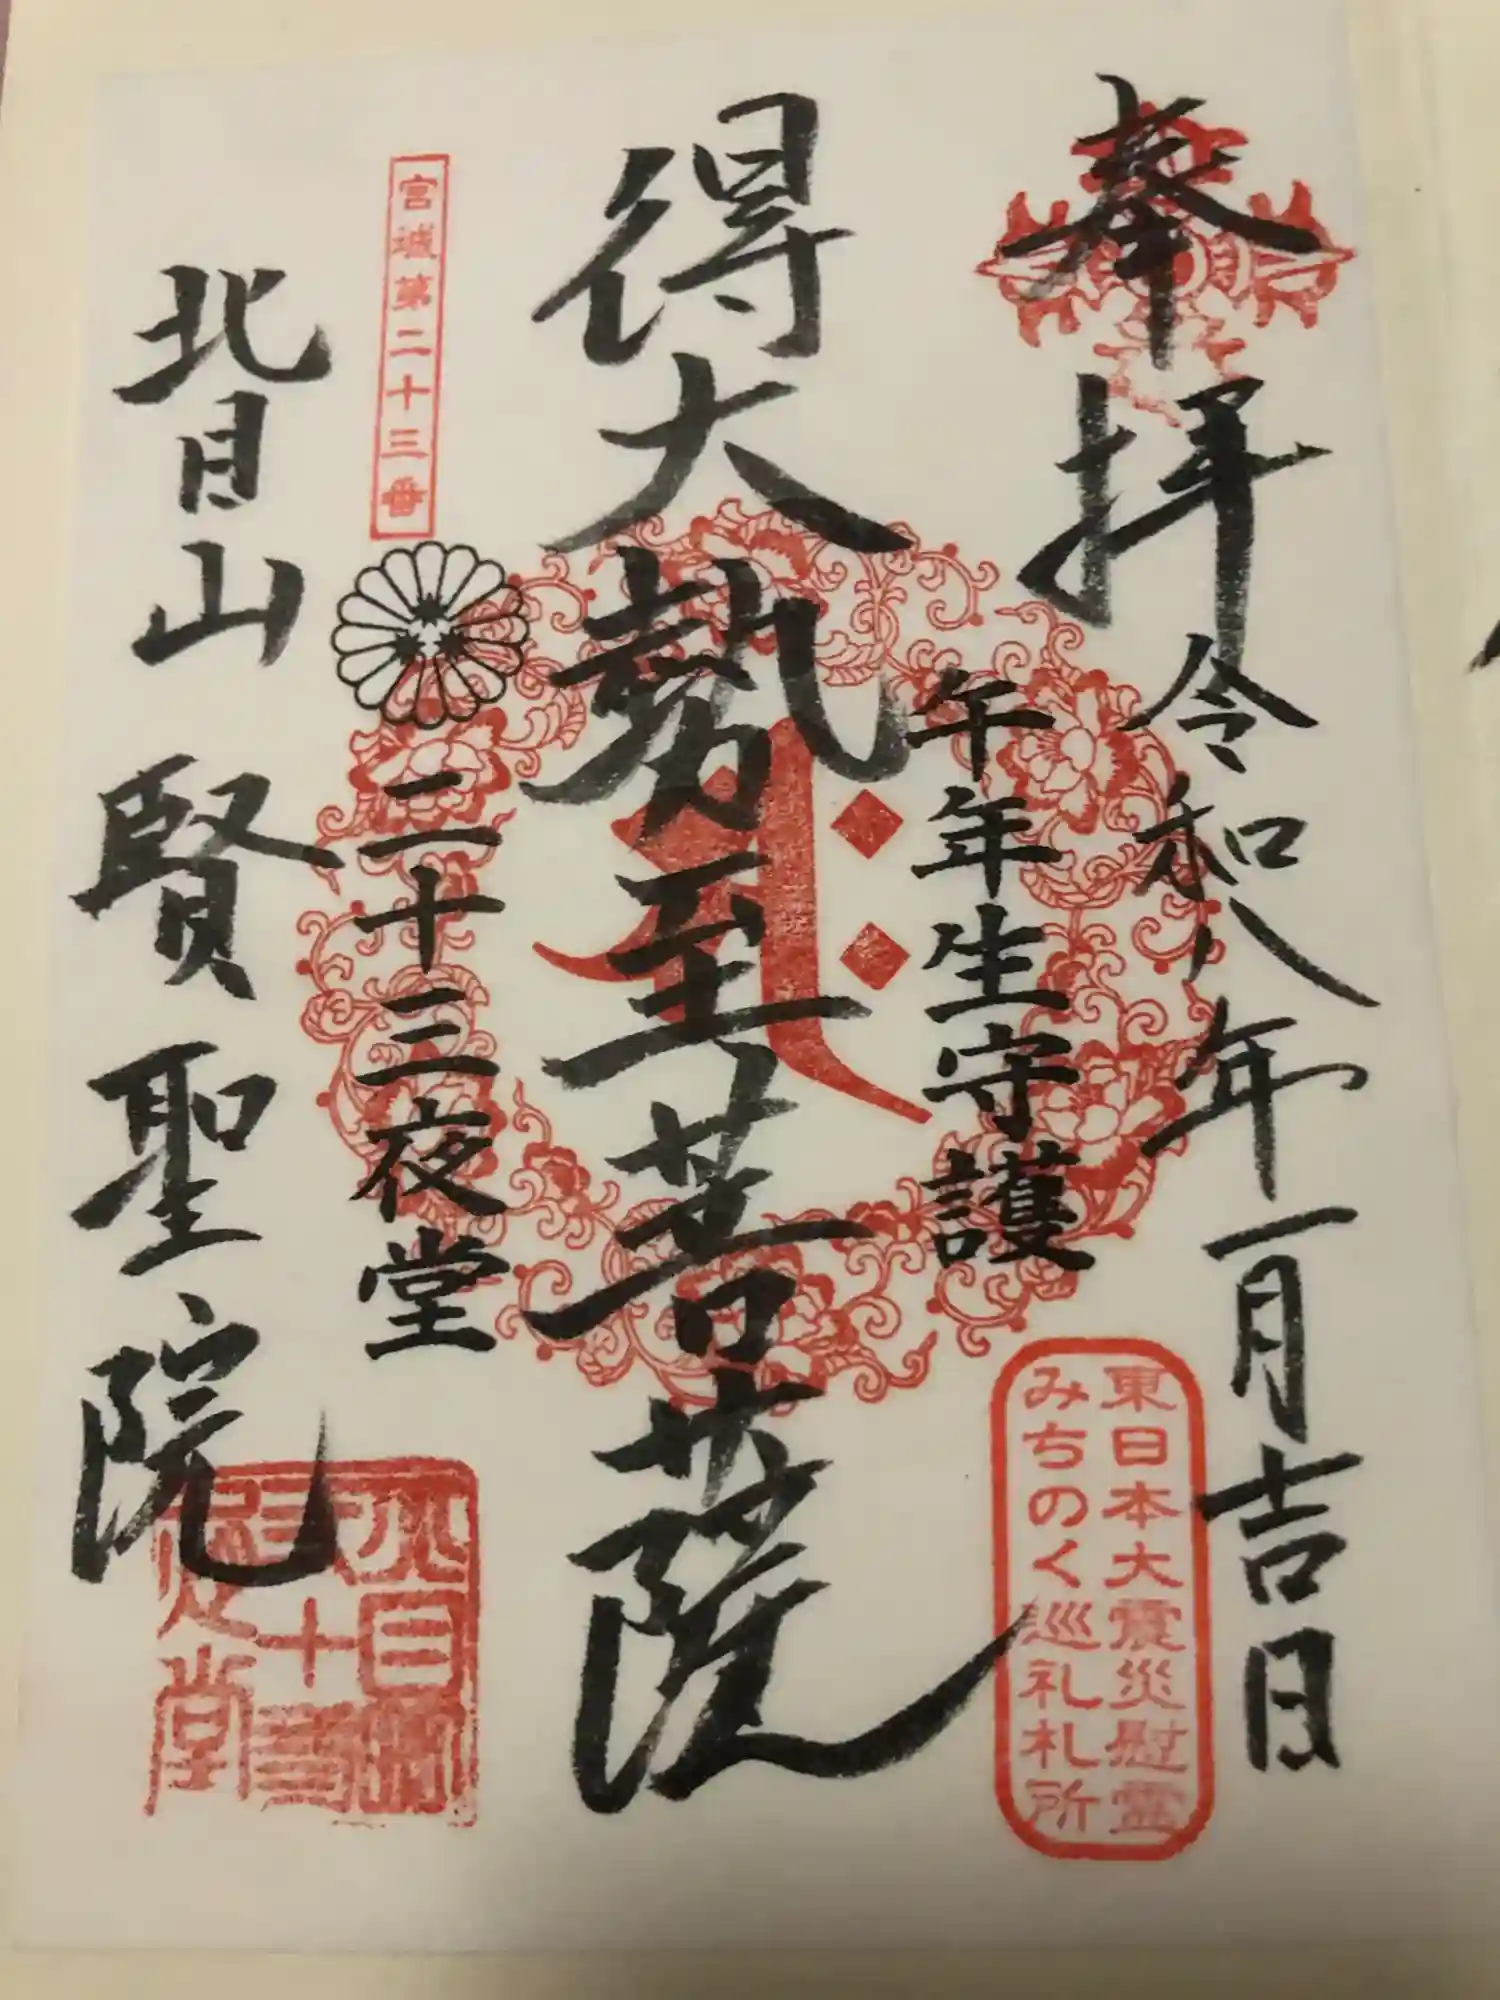 奉拝
令和八年一月吉日
東日本大震災慰霊
みちのく巡礼札所
午年生守護
得大勢至菩薩
宮城第二十三番
二十三夜堂
北目山 賢聖院